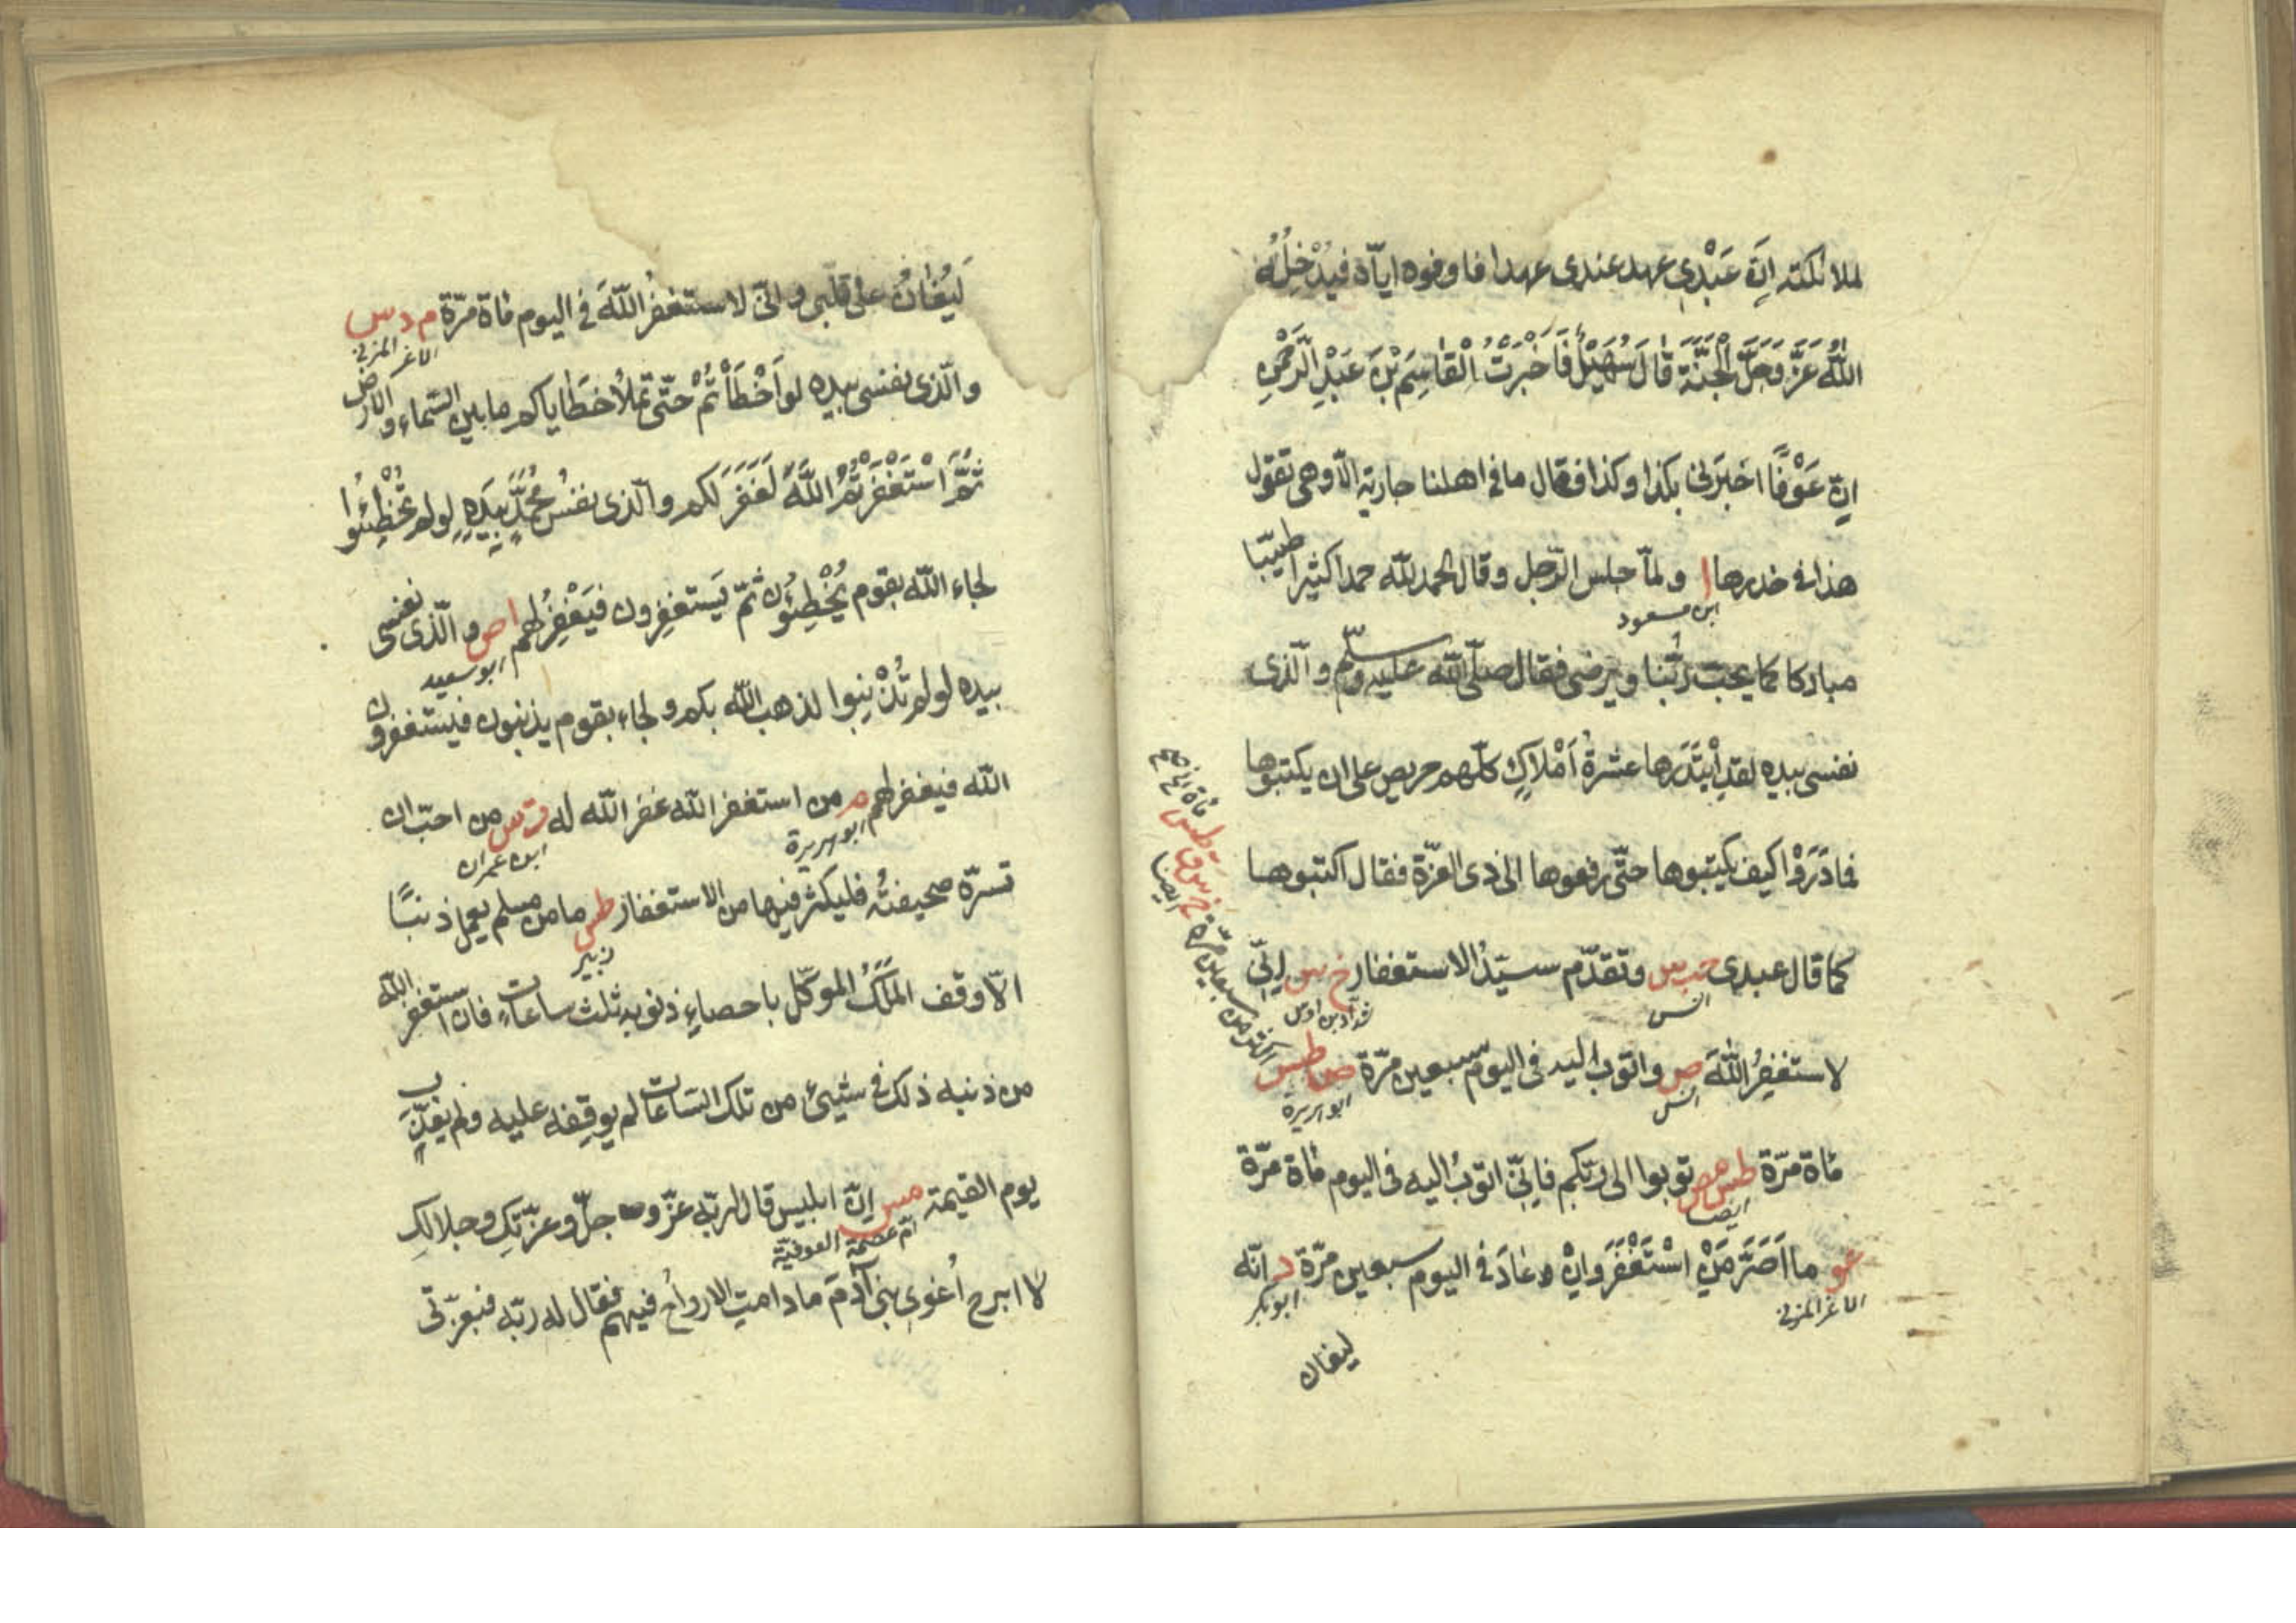 لملائكته اِنَّ عَبْدِى عهد عندى عهدا فاوفوه ايّاه فيُدْخِلُهُ
اللهُ عَزَّ وَجَلَّ الْجَنَّةَ قَالَ سُهَيْلٌ فَاَخْبَرْتُ الْقَاسِمَ بْنَ عَبْدِ الرَّحْمٰنِ
انّ عَوْفًا اخبَرَنى بكذا وكذا فقال ما فى اهلنا جارية الّا وهى تقول
هذا فى خدرها ا ولمّا جلس الرّجل وقال الحمد لله حمدا كثيرا طيّبا
ابن مسعود
مباركا كما يحبّ ربُّنا ويرضى فقال صلّى الله عليه وسلّم والّذى
نفسى بيده لقد ابْتَدَرها عشرةُ اَمْلاكٍ كلّهم حريص على ان يكتبوها
فما دَرَوْا كيف يكتبوها حتّى رفعوها الى ذى العزّة فقال اكتبوها
كما قال عبدى حب س وتقدّم سيّدُ الاستغفار خ س اِنِّى
انس
شدّاد بن اوس
لاستغفِرُ اللهَ ص واتوب اليه فى اليوم سبعين مرّة ص طس
انس
ابو هريرة
اكثر من سبعين مرّة خ س ق طس مأة مرة
ايضا
مأة مرّة طس مص توبوا الى ربّكم فاِنِّى اتوبُ اليه فى اليوم مأة مرّة
ايضا
عو ما اَصَرَّ مَنْ اسْتَغْفَرَ وَاِنْ عَادَ فى اليوم سبعين مرّة د انّه
الاغر المزنى
ابو بكر
ليغان
لَيُغَانُ على قلبى وانّى لاستغفرُ اللهَ فى اليوم مأة مرّة م د س
الاغر المزنى
والّذى نفسى بيده لو اَخْطَأْتُمْ حتّى تملأ خطاياكم ما بين السّماء والارض
ثُمَّ اسْتَغْفَرْتُمُ اللهَ لَغَفَرَ لكم والّذى نفسُ مُحَمَّدٍ بِيَدِهِ لو لم تُخْطِئُوا
لجاء الله بقوم يُخْطِئُون ثمّ يَستغفِرون فيَغْفِرُ لهم ا ص والّذى نفسى
ابو سعيد
بيده لو لم تُذْنِبوا لذهب الله بكم ولجاء بقوم يذنبون فيستغفرون
الله فيغفر لهم م من استغفر الله غفر الله له ت س من احبّ ان
ابو هريرة
ابن عمران
تسرّه صحيفتُه فليكثر فيها من الاستغفار طس ما من مسلم يعمل ذنبًا
زبير
الّا وقف المَلَكُ الموكّل باحصاءِ ذنوبه ثلث ساعات فان استغفر الله
من ذنبه ذلك فى شيئ من تلك السّاعات لم يوقفه عليه ولم يعذّب
يوم القيمة مس اِنّ ابليس قال لربّه عزّ وجلّ وعزّتِك وجلالِك
امّ عصمة العوفيّة
لا ابرح اُغوى بنى آدَمَ ما دامتِ الارواحُ فيهم فقال له ربّه فبعزّتى